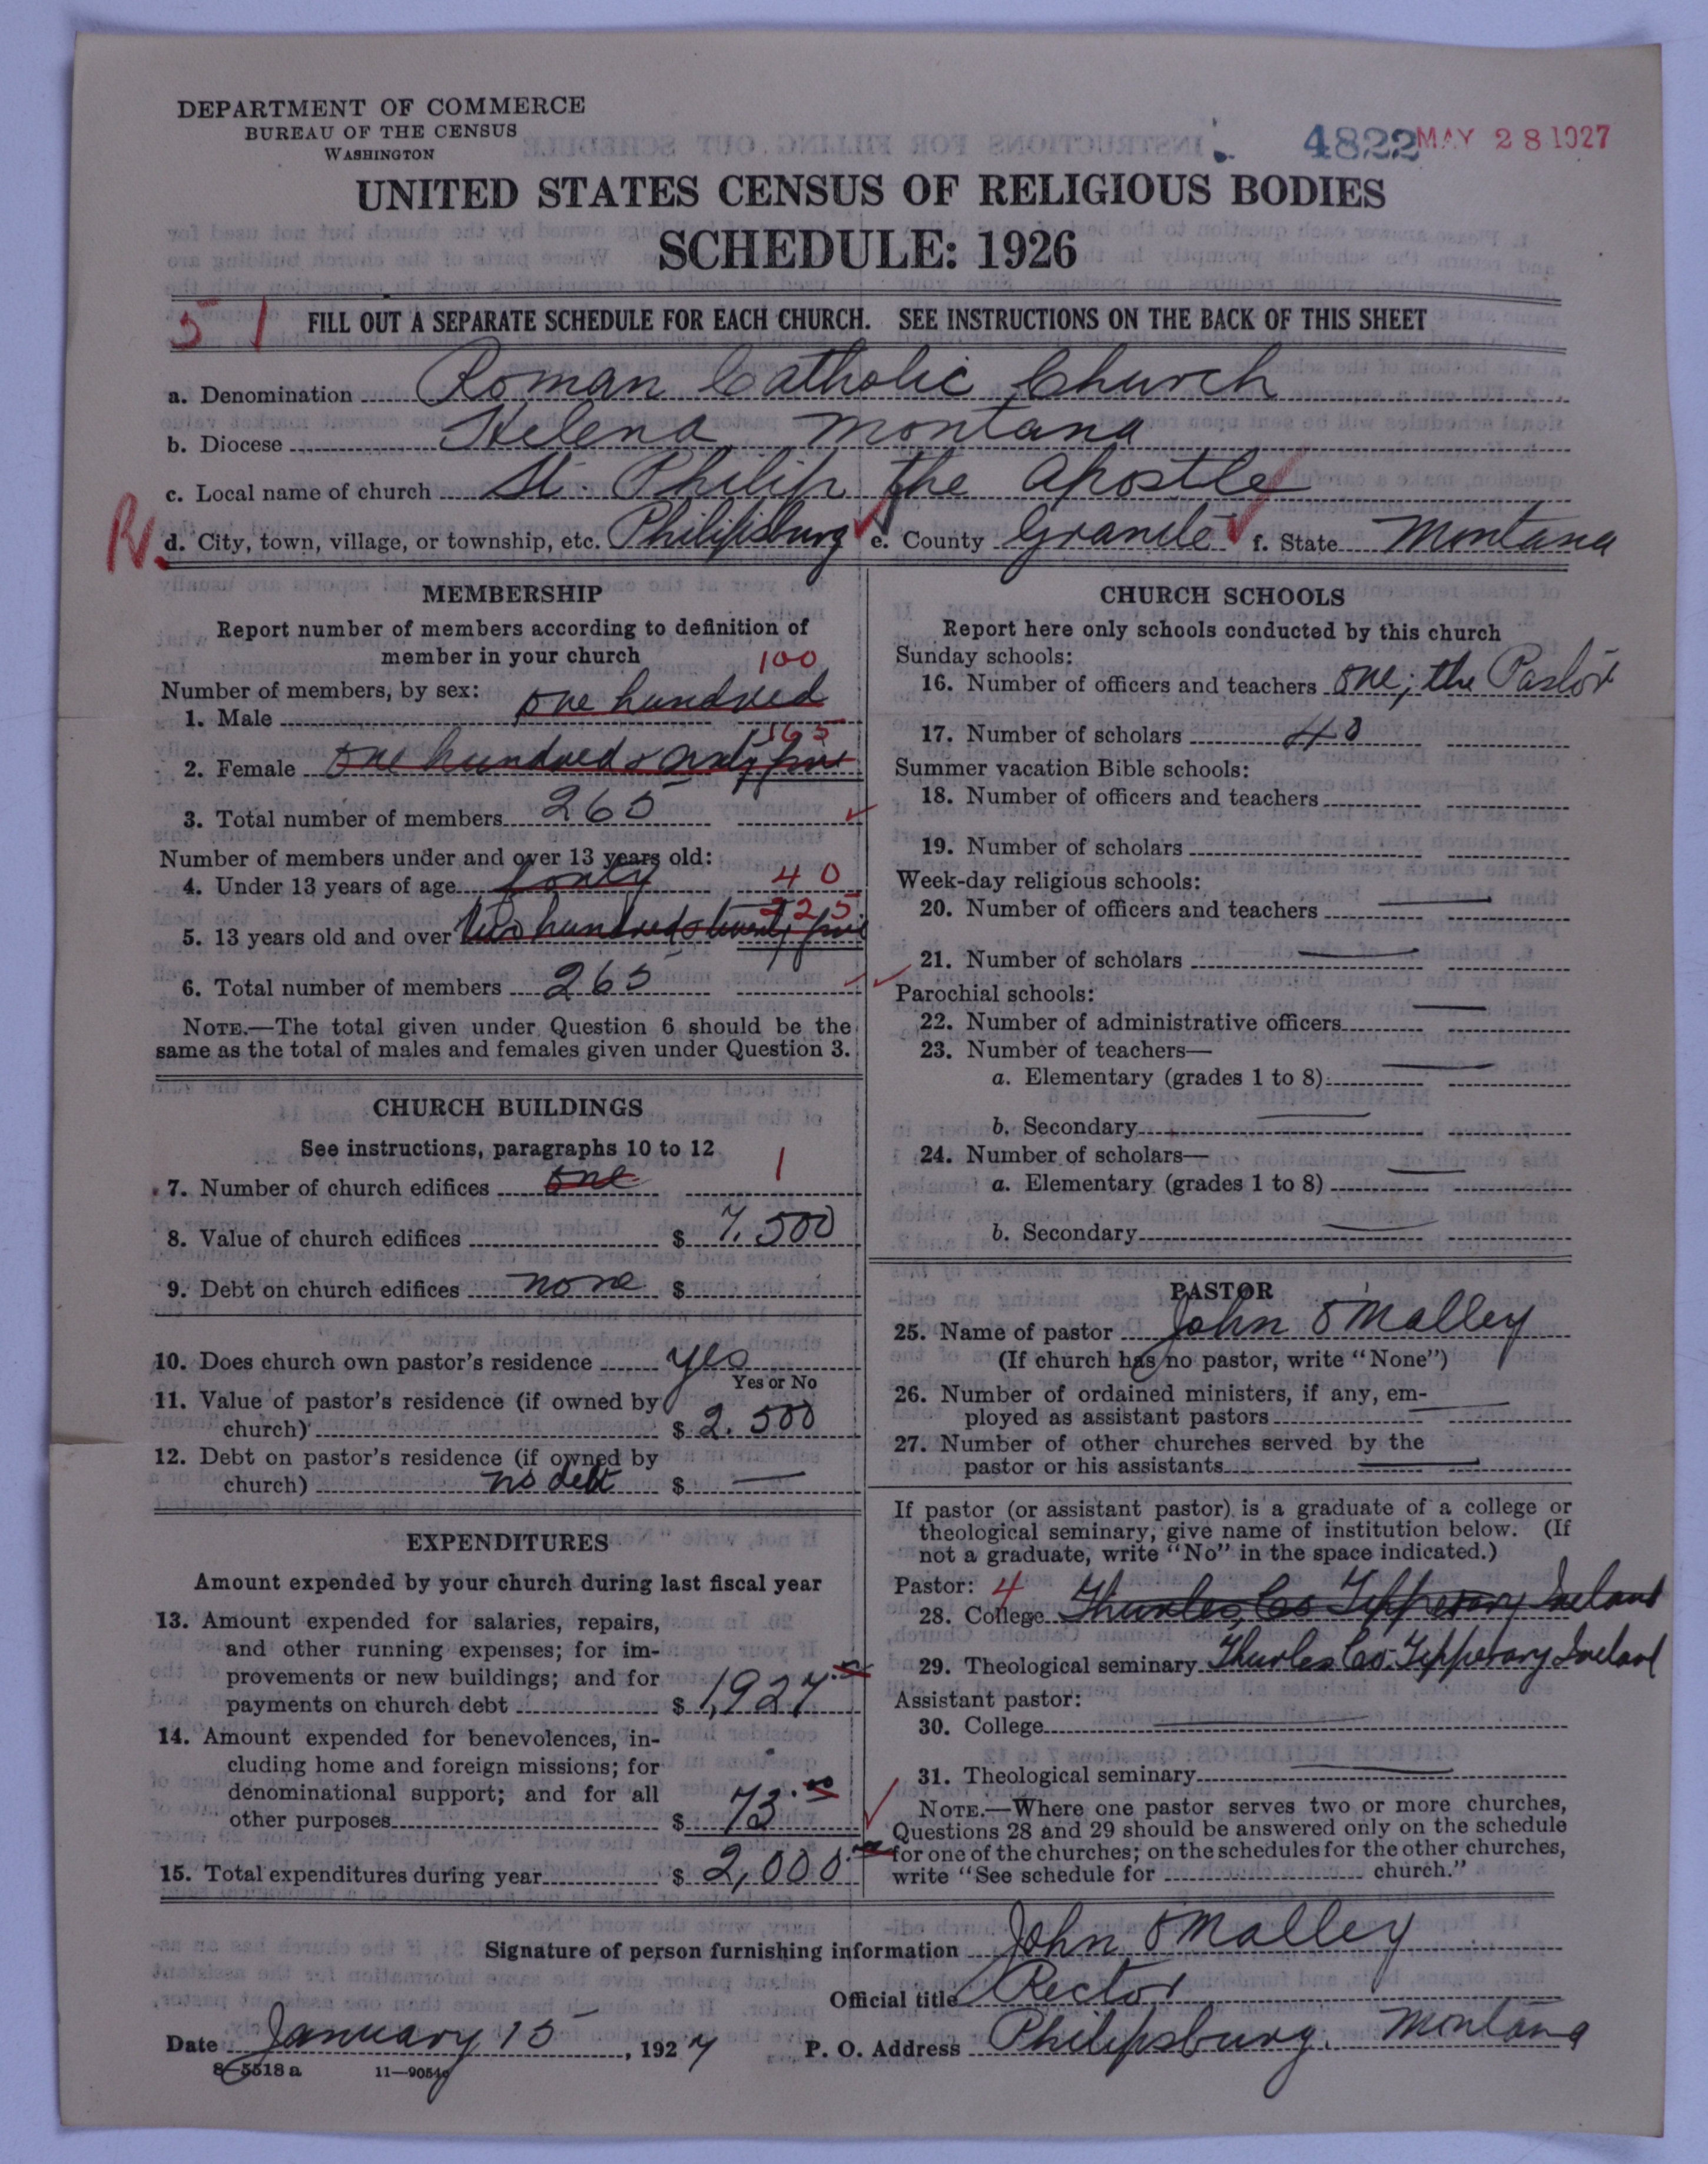 DEPARTMENT OF COMMERCE
BUREAU OF THE CENSUS
WASHINGTON
4822 MAY 28 1927
UNITED STATES CENSUS OF RELIGIOUS BODIES
SCHEDULE: 1926
5 1 FILL OUT A SEPARATE SCHEDULE FOR EACH CHURCH. SEE INSTRUCTIONS ON THE BACK OF THIS SHEET
a. Denomination Roman Catholic Church
b. Diocese Helena, Montana
c. Local name of church St. Philip the Apostle
R. d. City, town, village, or township, etc. Philipsburg e. County Granite f. State Montana
MEMBERSHIP
Report number of members according to definition of
member in your church
100
Number of members, by sex:
1. Male one hundred
165
2. Female one hundred & sixty five
3. Total number of members 265
Number of members under and over 13 years old:
4. Under 13 years of age forty 40
225
5. 13 years old and over two hundred & twenty five
6. Total number of members 265
NOTE.—The total given under Question 6 should be the
same as the total of males and females given under Question 3.
CHURCH BUILDINGS
See instructions, paragraphs 10 to 12
7. Number of church edifices one 1
8. Value of church edifices $ 7,500
9. Debt on church edifices none $
10. Does church own pastor's residence yes
Yes or No
11. Value of pastor's residence (if owned by
church) $ 2,500
12. Debt on pastor's residence (if owned by
church) no debt $ —
EXPENDITURES
Amount expended by your church during last fiscal year
13. Amount expended for salaries, repairs,
and other running expenses; for im-
provements or new buildings; and for
payments on church debt $ 1,927
14. Amount expended for benevolences, in-
cluding home and foreign missions; for
denominational support; and for all
other purposes $ 73
15. Total expenditures during year $ 2,000
CHURCH SCHOOLS
Report here only schools conducted by this church
Sunday schools:
16. Number of officers and teachers one; the Pastor
17. Number of scholars 40
Summer vacation Bible schools:
18. Number of officers and teachers
19. Number of scholars
Week-day religious schools:
20. Number of officers and teachers —
21. Number of scholars —
Parochial schools:
22. Number of administrative officers —
23. Number of teachers—
a. Elementary (grades 1 to 8) —
b. Secondary —
24. Number of scholars—
a. Elementary (grades 1 to 8) —
b. Secondary —
PASTOR
25. Name of pastor John O'Malley
(If church has no pastor, write "None")
26. Number of ordained ministers, if any, em-
ployed as assistant pastors —
27. Number of other churches served by the
pastor or his assistants —
If pastor (or assistant pastor) is a graduate of a college or
theological seminary, give name of institution below. (If
not a graduate, write "No" in the space indicated.)
Pastor: 4
28. College Thurles, Co Tipperary Ireland
29. Theological seminary Thurles Co. Tipperary Ireland
Assistant pastor:
30. College —
31. Theological seminary —
NOTE.—Where one pastor serves two or more churches,
Questions 28 and 29 should be answered only on the schedule
for one of the churches; on the schedules for the other churches,
write "See schedule for church."
Signature of person furnishing information John O'Malley
Official title Rector
Date January 15, 1927 P. O. Address Philipsburg, Montana
8—5518a 11—9054